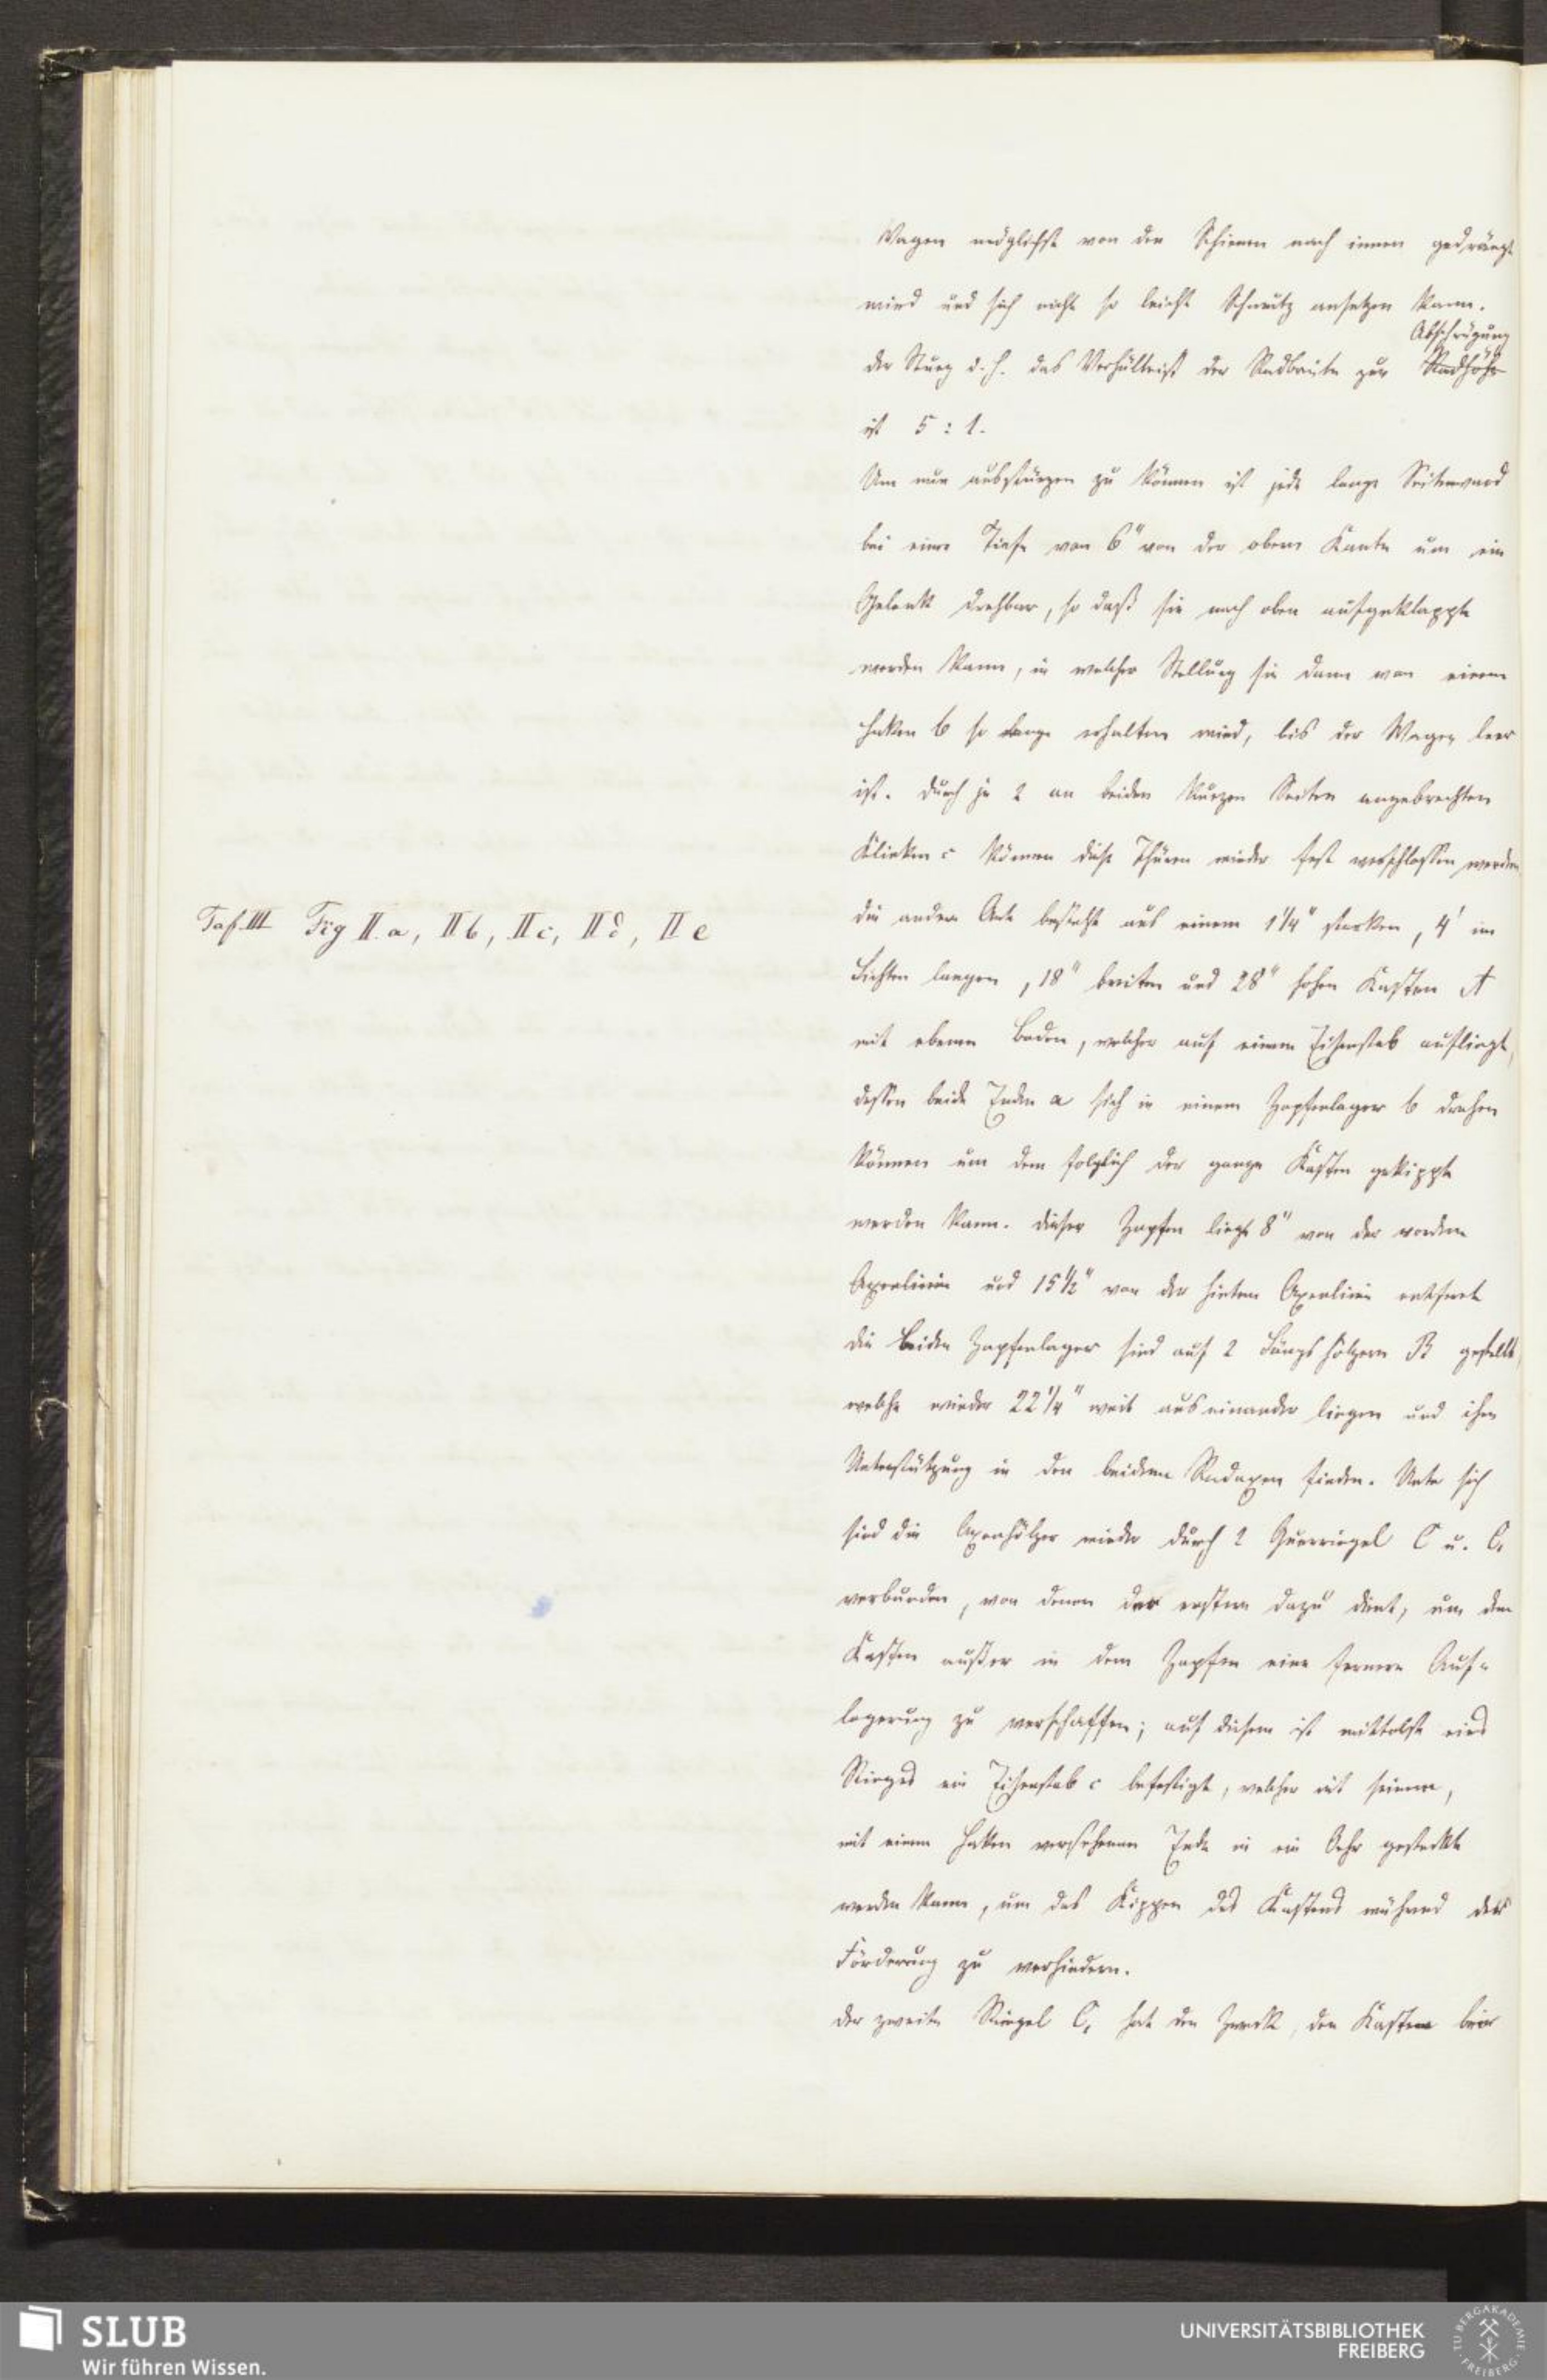 Wagen möglichst von den Schienen nach innen gedrängt
wird und sich nicht so leicht Schmutz ansetzen kann.
Abschrägung
der Sturz d. h. das Verhältniß der Radbreite zur Radhöhe
ist 5 : 1.
Um nun ausstürzen zu können ist jede lange Seitenwand
bei einer Tiefe von 6" von der obern Kante um ein
Gelenk drehbar, so daß sie nach oben aufgeklappt
werden kann, in welcher Stellung sie dann von einem
Haken b so lange erhalten wird, bis der Wagen leer
ist. Durch je 2 an beiden kurzen Seiten angebrachten
Klinken c können diese Thüren wieder fest verschlossen werden,
Taf. III Fig II. a, II b, II c, II d, II e
die andere Art besteht aus einem 1 1/4" starken, 4' im
Lichten langen, 18" breiten und 28" hohen Kasten A
mit ebenem Boden, welcher auf einem Eisenstab aufliegt,
dessen beide Enden a sich in einem Zapfenlager b drehen
können um den folglich der ganze Kasten gekippt
werden kann. Dieser Zapfen liegt 8" von der vordern
Axenlinie und 15 1/2" von der hintern Axenlinie entfernt
die beiden Zapfenlager sind auf 2 Längshölzern B gestellt,
welche wieder 22 1/4" weit auseinander liegen und ihre
Unterstützung in den beiden Radaxen finden. Unter sich
sind die Axenhölzer wieder durch 2 Querriegel C u. C,
verbunden, von denen der erstere dazu dient, um den
Kasten außer in dem Zapfen eine fernere Auf-
lagerung zu verschaffen; auf diesem ist mittelst eines
Ringes ein Eisenstab c befestigt, welcher mit seinem,
mit einem Haken versehenen Ende in ein Oehr gesteckt
werden kann, um das Kippen des Kastens während der
Förderung zu verhindern.
der zweite Riegel C, hat den Zweck, den Kasten beim
SLUB
Wir führen Wissen.
UNIVERSITÄTSBIBLIOTHEK
FREIBERG
TU BERGAKADEMIE
FREIBERG